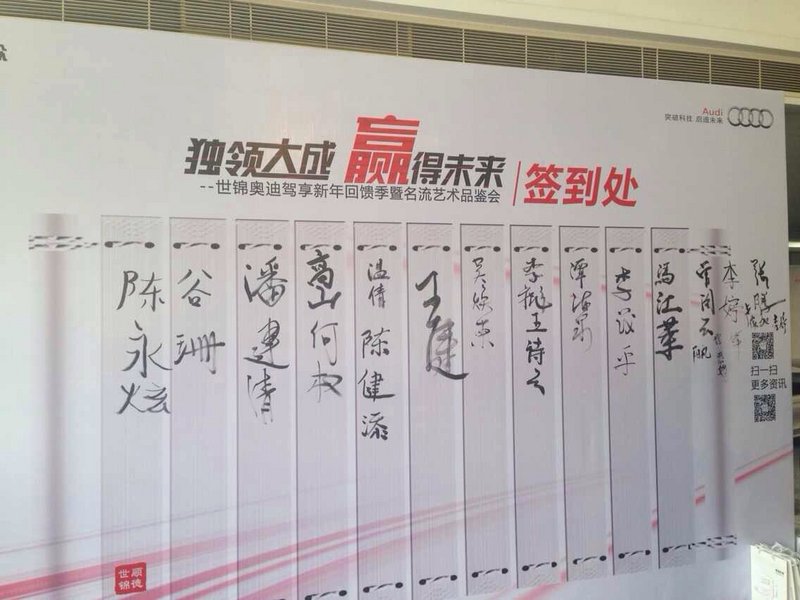 Audi
突破科技 启迪未来
独领大成 赢得未来
--世锦奥迪驾享新年回馈季暨名流艺术品鉴会
签到处
陈永炫
谷珊
潘建清
高山 何权
温倩 陈健添
王建
吴焕荣
李挺 王诗云
李茂平
冯江华
李婷
扫一扫
更多资讯
顺德
世锦